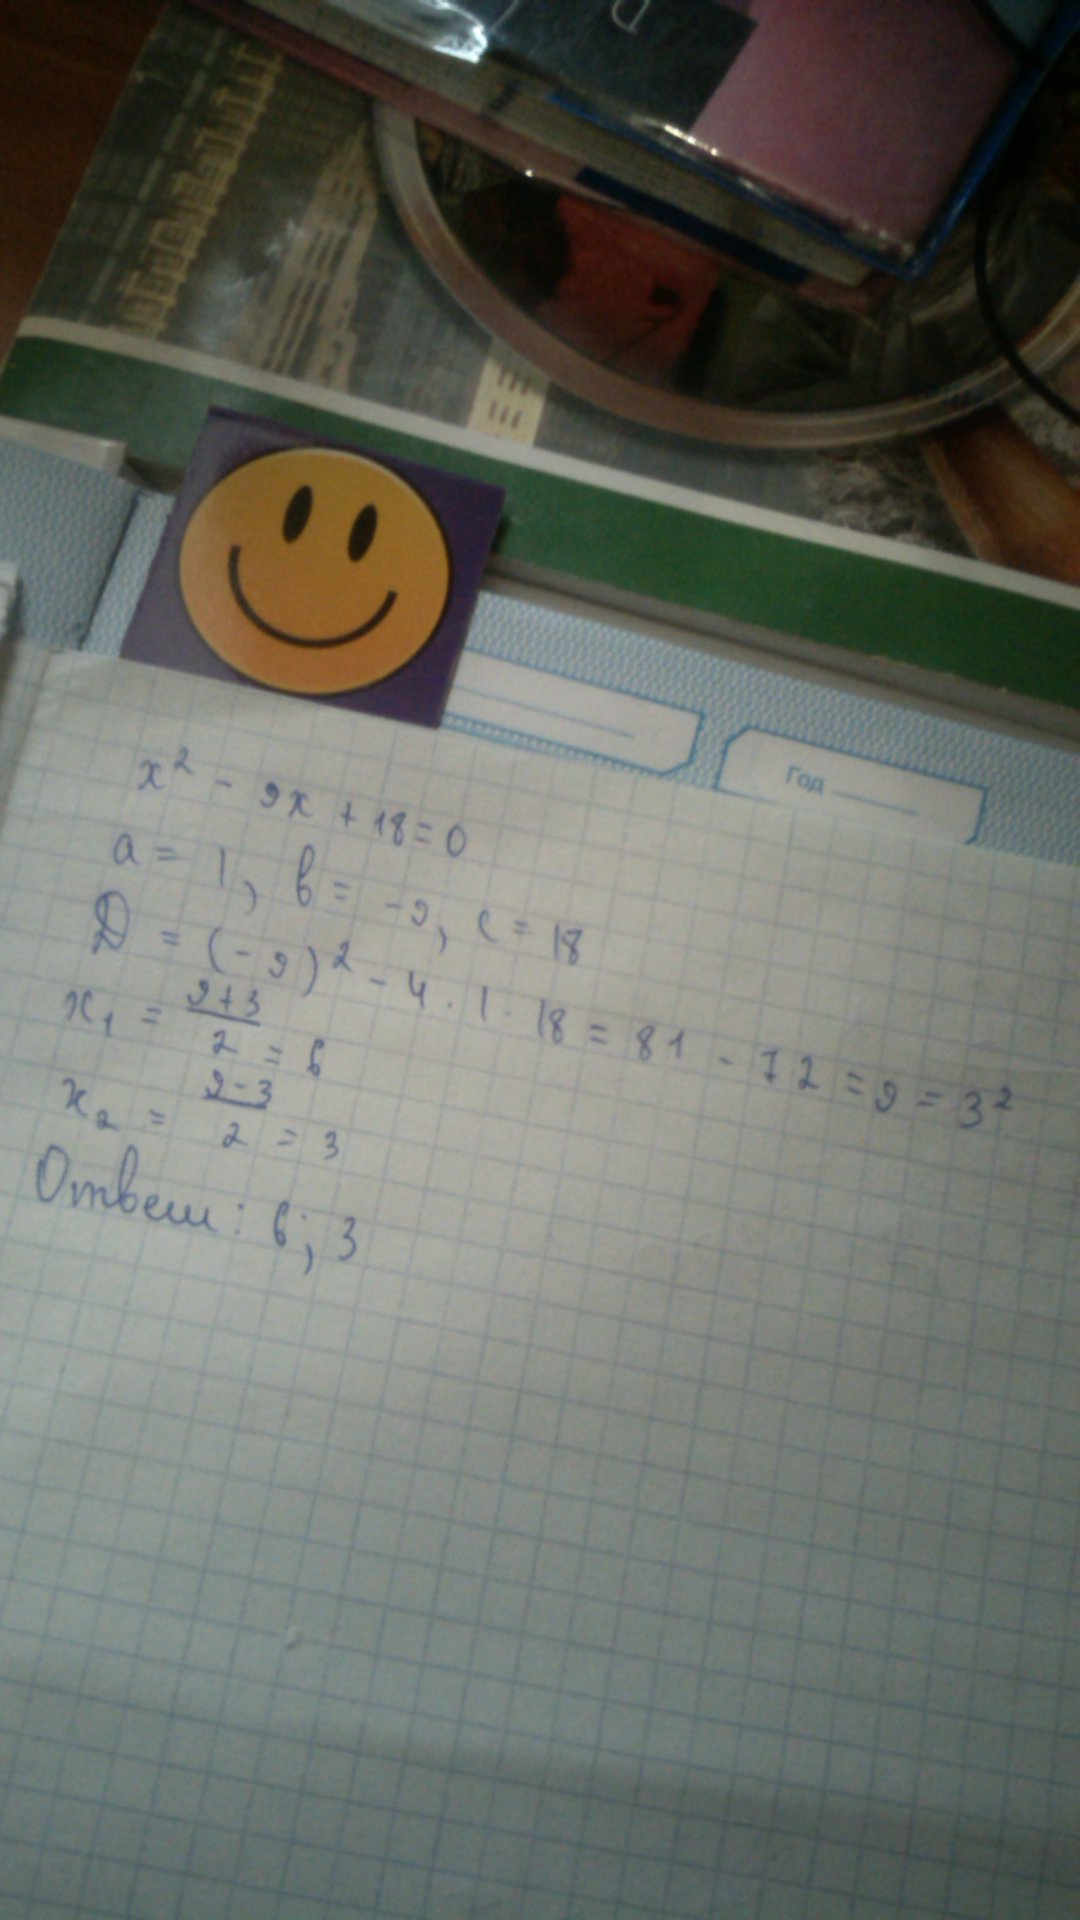 Год
x² - 9x + 18 = 0
a = 1, b = -9, c = 18
D = (-9)² - 4 · 1 · 18 = 81 - 72 = 9 = 3²
x₁ = (9+3)/2 = 6
x₂ = (9-3)/2 = 3
Ответ: 6; 3